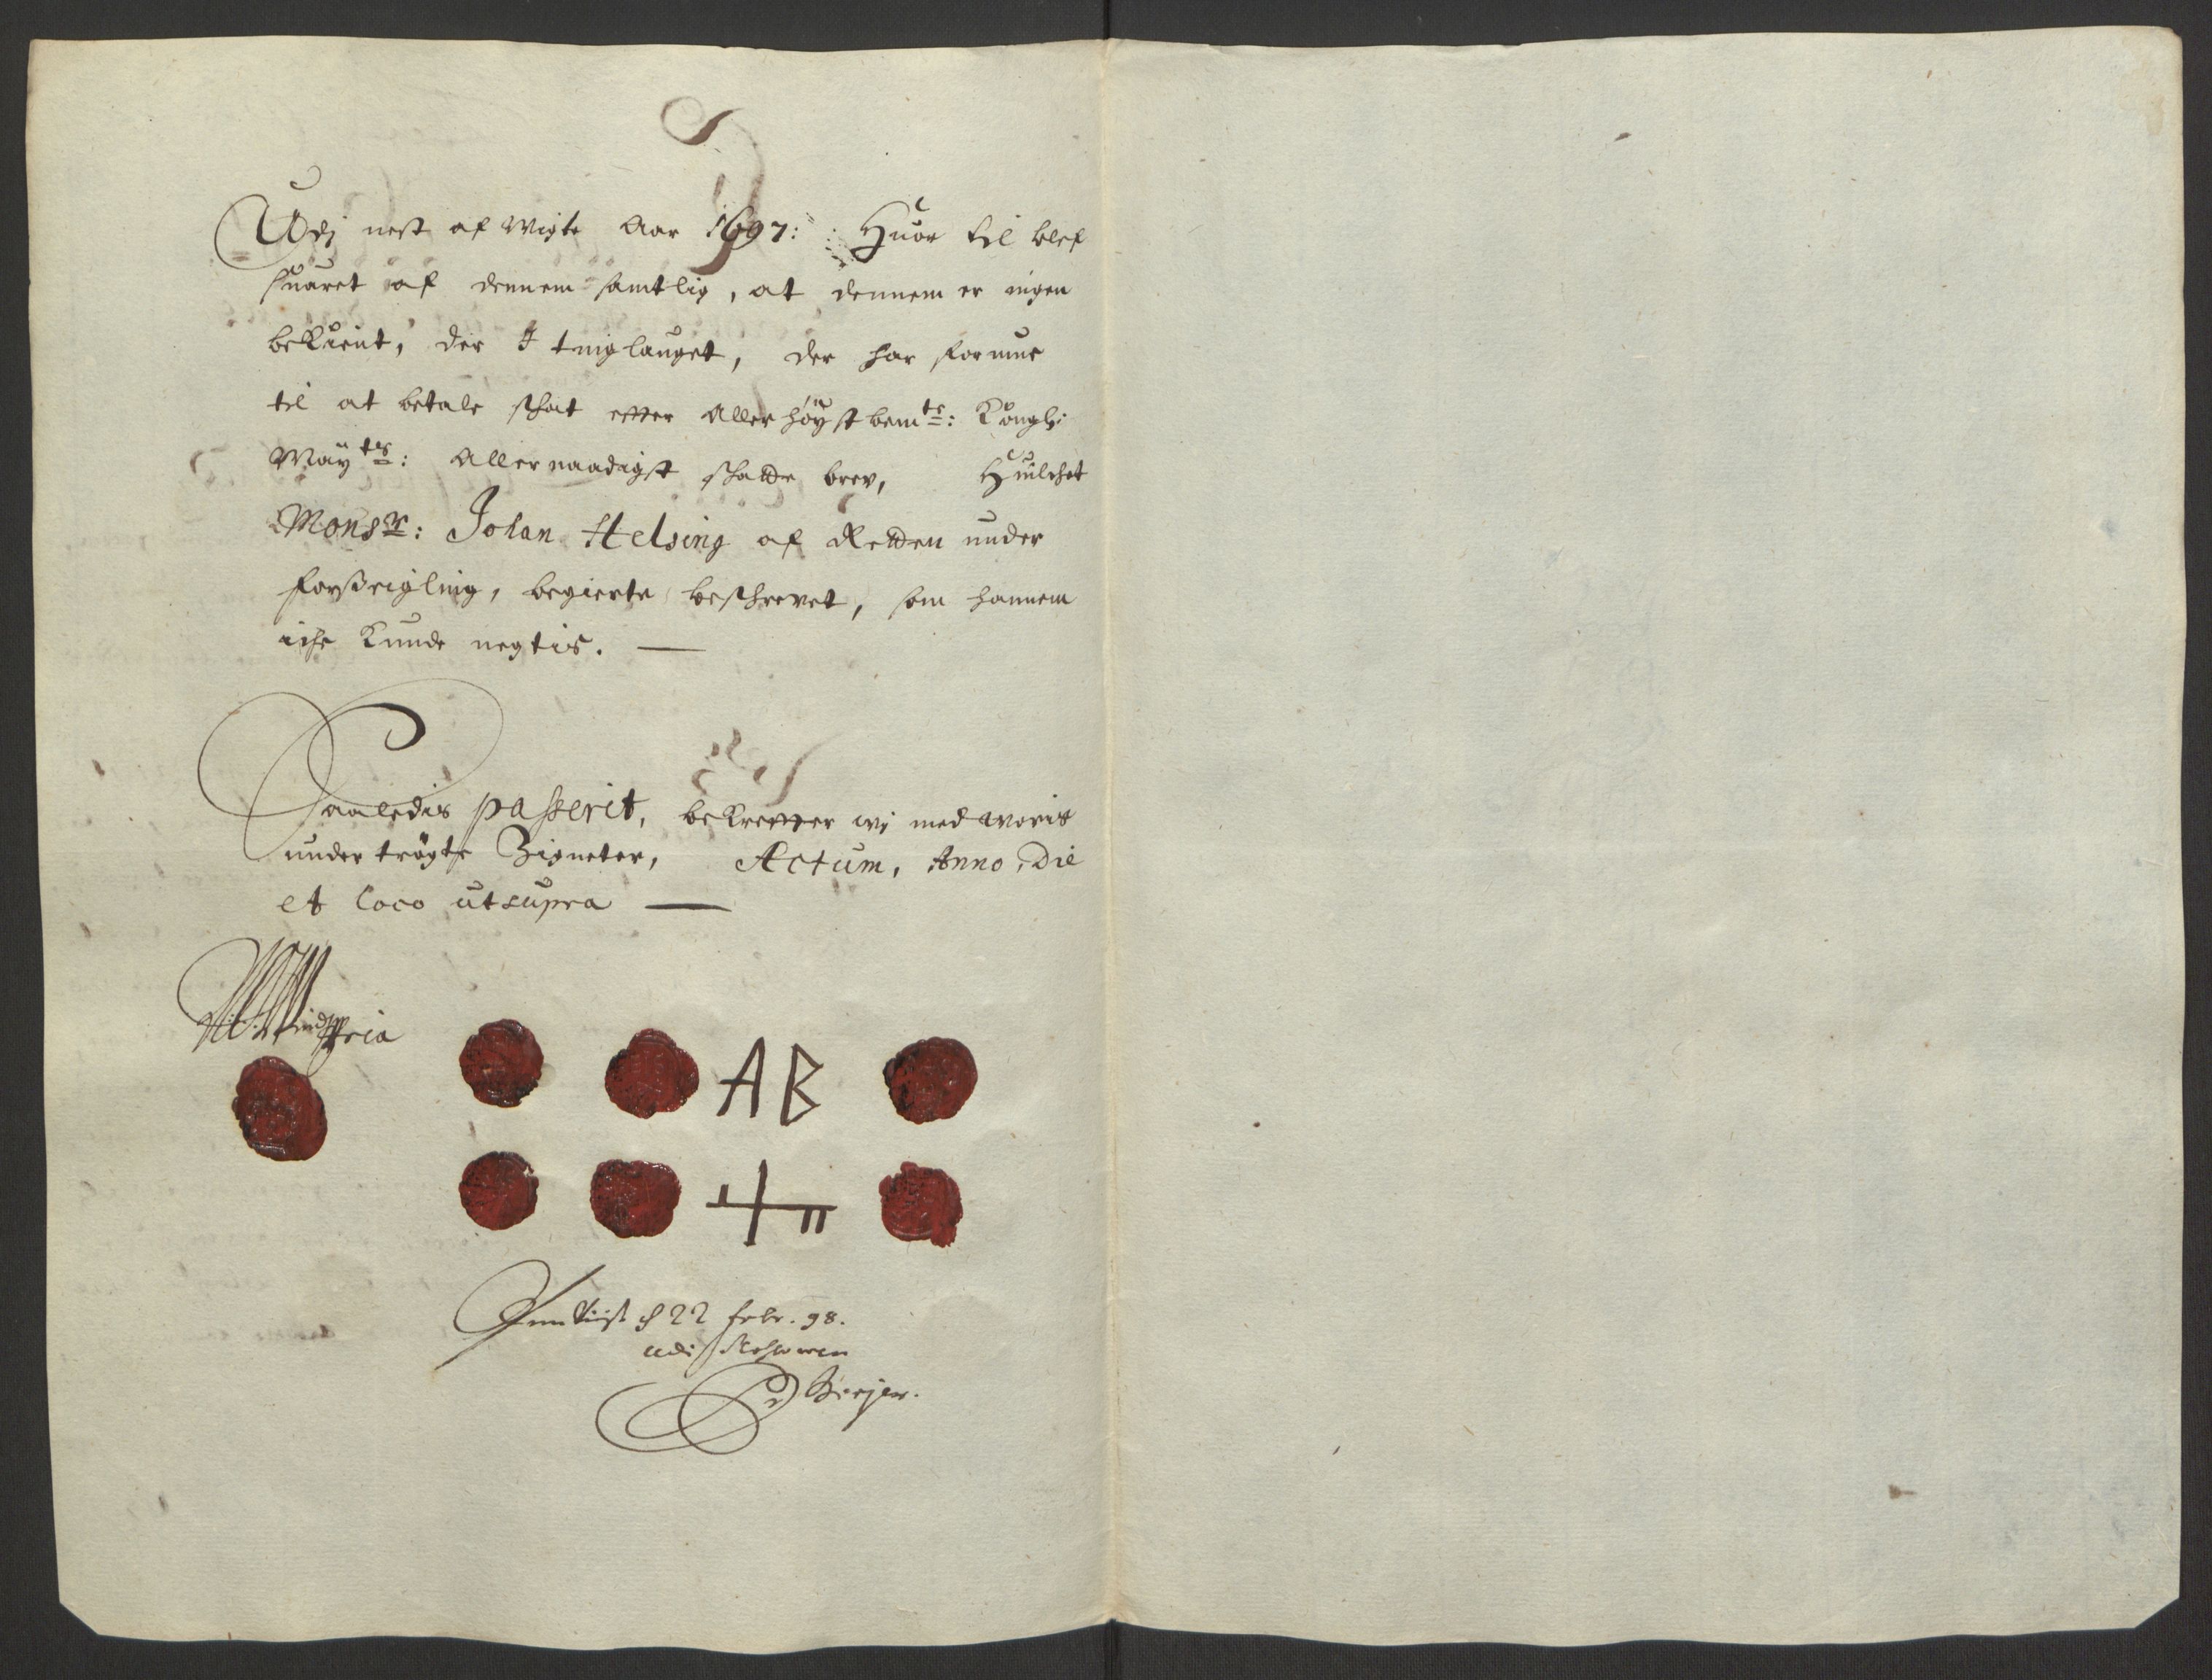 Udj nest af wigte Aar 1697: Huor til blef
suaret af dennem samtlig, at dennem er ingen
bekient, der I tinglauget, der har formue
til at betale skat effter Aller höyst bemte: Kongl:
Mayts: Allernaadigst skatte brev, Huilchet
Monsr: Johan Helsing af Retten under
forseigling, begierte beskrevet, som hannem
iche Kunde negtis. —
Saaledis passerit, bekreffter wj med woris
under trögte Zigneter, Actum, Anno, Die
et Loco utsupra —
AB
d 22 febr. 98.
udi